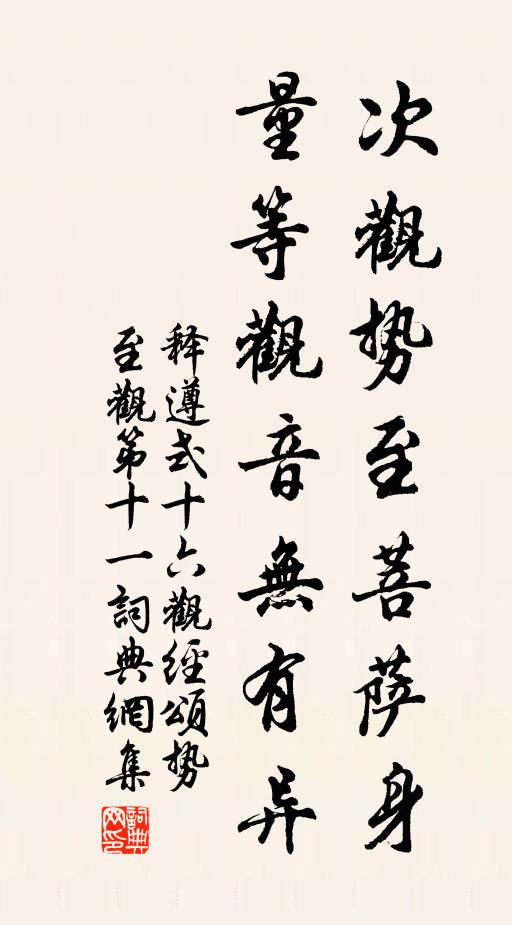 次觀势至菩萨身
量等觀音無有异
释遵式十六觀經頌势
至觀第十一詞典網集
詞典网印